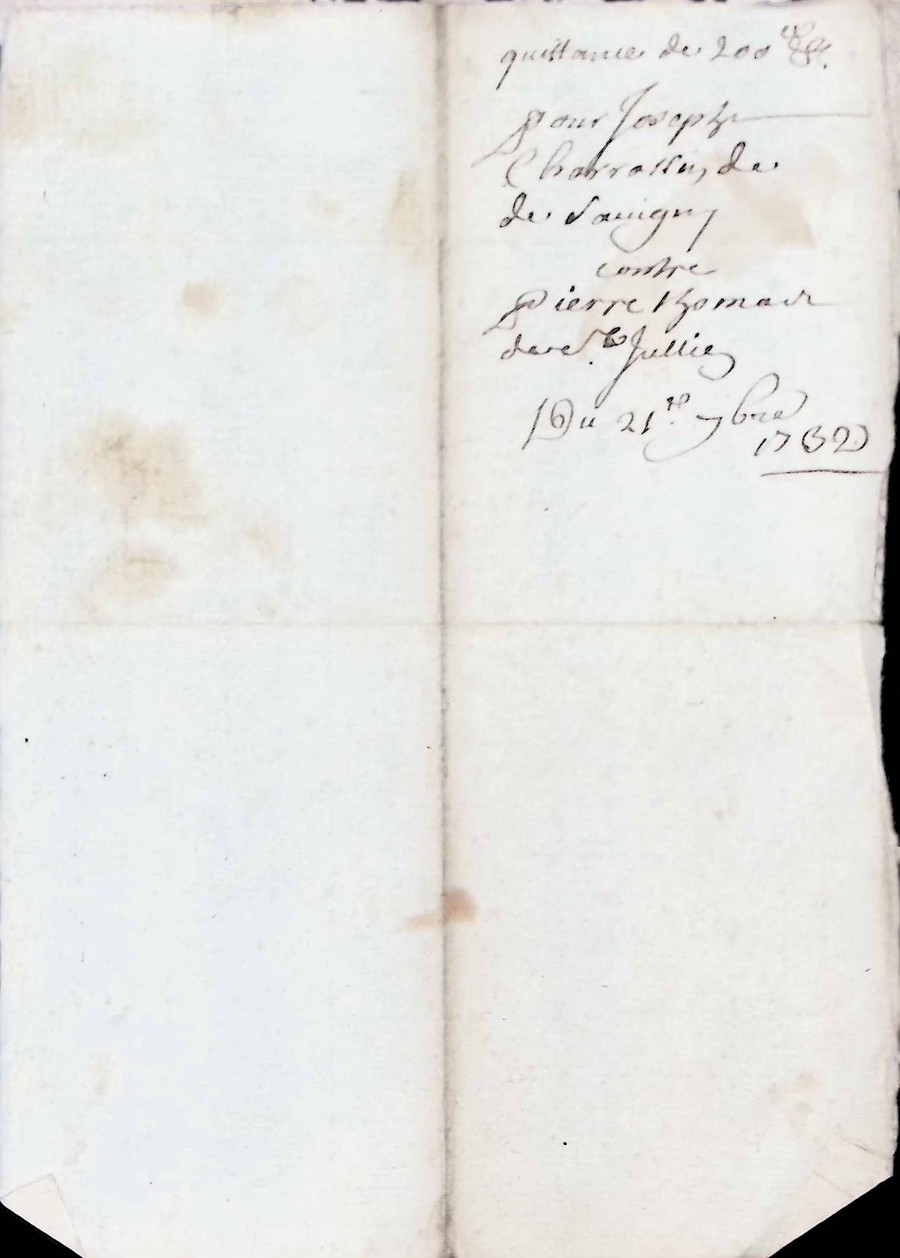 quittance de 200 ₶.
pour Joseph
Charrassin de
de Savigny
contre
Pierre thomas
de St. Jullie
Du 21e. 7bre
1732